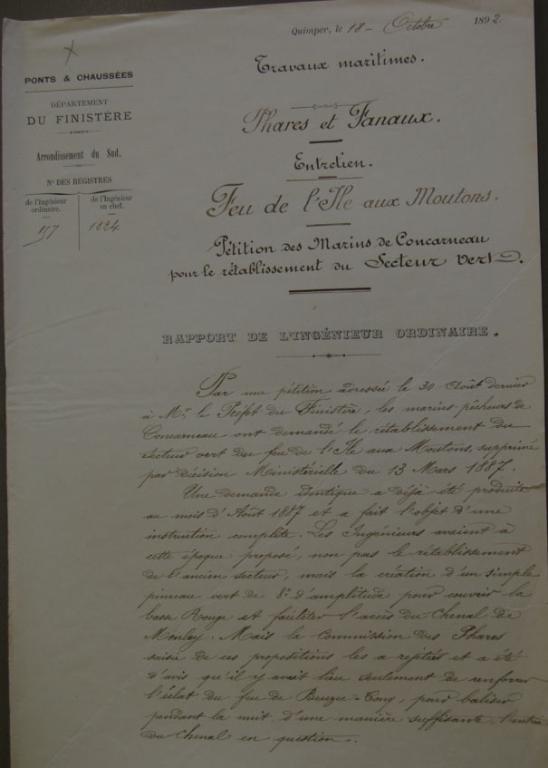 Quimper, le 18 - Octobre 1892.
PONTS & CHAUSSÉES
DÉPARTEMENT
DU FINISTÈRE
Arrondissement du Sud.
Nos DES REGISTRES
de l'Ingénieur ordinaire.
de l'Ingénieur en chef.
197
1024
Travaux maritimes.
Phares et Fanaux.
Entretien.
Feu de l'Ile aux Moutons.
Pétition des Marins de Concarneau
pour le rétablissement du Secteur vert.
RAPPORT DE L'INGÉNIEUR ORDINAIRE.
Par une pétition adressée le 30 Août dernier
à Mr. le Préfet du Finistère, les marins pêcheurs de
Concarneau ont demandé le rétablissement du
secteur vert du feu de l'Ile aux Moutons, supprimé
par décision Ministérielle du 13 Mars 1887.
Une demande identique a déjà été produite
au mois d'Août 1887 et a fait l'objet d'une
instruction complète. Les Ingénieurs avaient à
cette époque proposé, non pas le rétablissement
de l'ancien secteur, mais la création d'un simple
pinceau vert de 8° d'amplitude pour couvrir la
basse Rouge et faciliter l'accès du Chenal de
. Mais la Commission des Phares
saisie de ces propositions les a rejetées et a été
d'avis qu'il y avait lieu seulement de renforcer
l'éclat du feu de Beuzec-Conq, pour baliser
pendant la nuit d'une manière suffisante l'entrée
du Chenal en question.